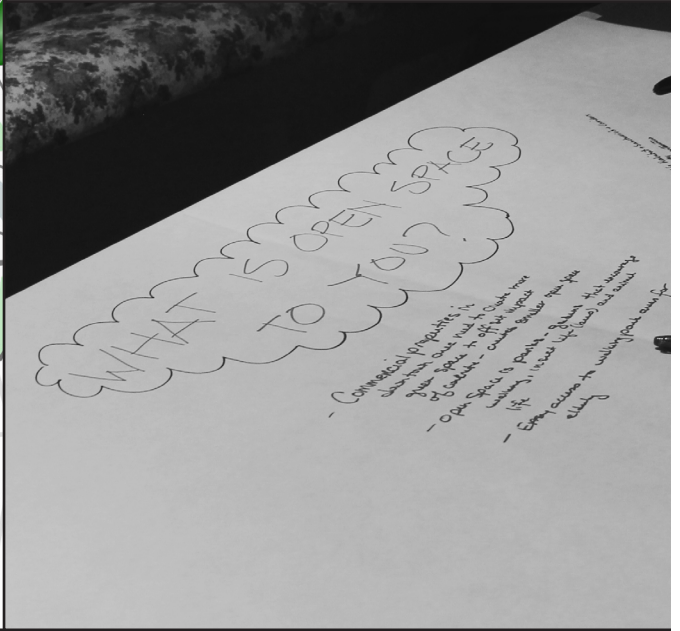 WHAT IS OPEN SPACE
TO YOU?
- Commercial properties in
down town area need to create more
green space to off set impact
of concrete - create smaller open space
- Open Space is parks - gardens that encourage
walking, insect life (bees) and animal
life
- Easy access to walking paved areas for
elderly